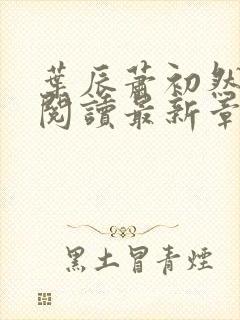 葉辰蕭初然
閱讀最新章
黑土冒青煙